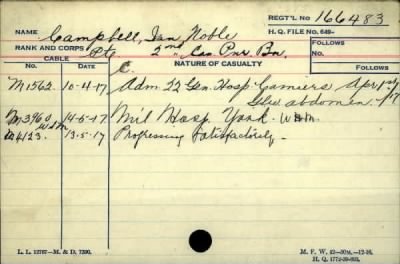 REGT'L No 166483
NAME Campbell, Ian Noble H. Q. FILE No. 649-
RANK AND CORPS Pte 2nd Can Pnr Bn. FOLLOWS
CABLE NATURE OF CASUALTY No.
No. DATE C. FOLLOWS
M1562 10-4-17 Adm 22 Gen. Hosp Camiers Apr 1st/17
abdomen
M3960 14-5-17 Mil Hosp York.
M4123. 13.5.17 Progressing Satisfactorily
L. L. 12787—M. & D. 7390. M. F. W. 42—50M.—12-16.
H. Q. 1772-39-893.